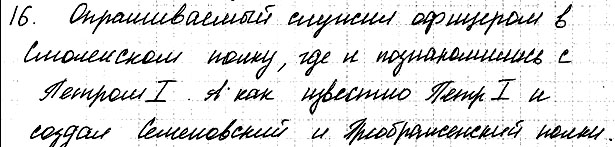 16. Опрашиваемый служил офицером в
Смоленском полку, где и познакомились с
Петром I. А как известно Петр I и
создал Семеновский и Преображенский полки.